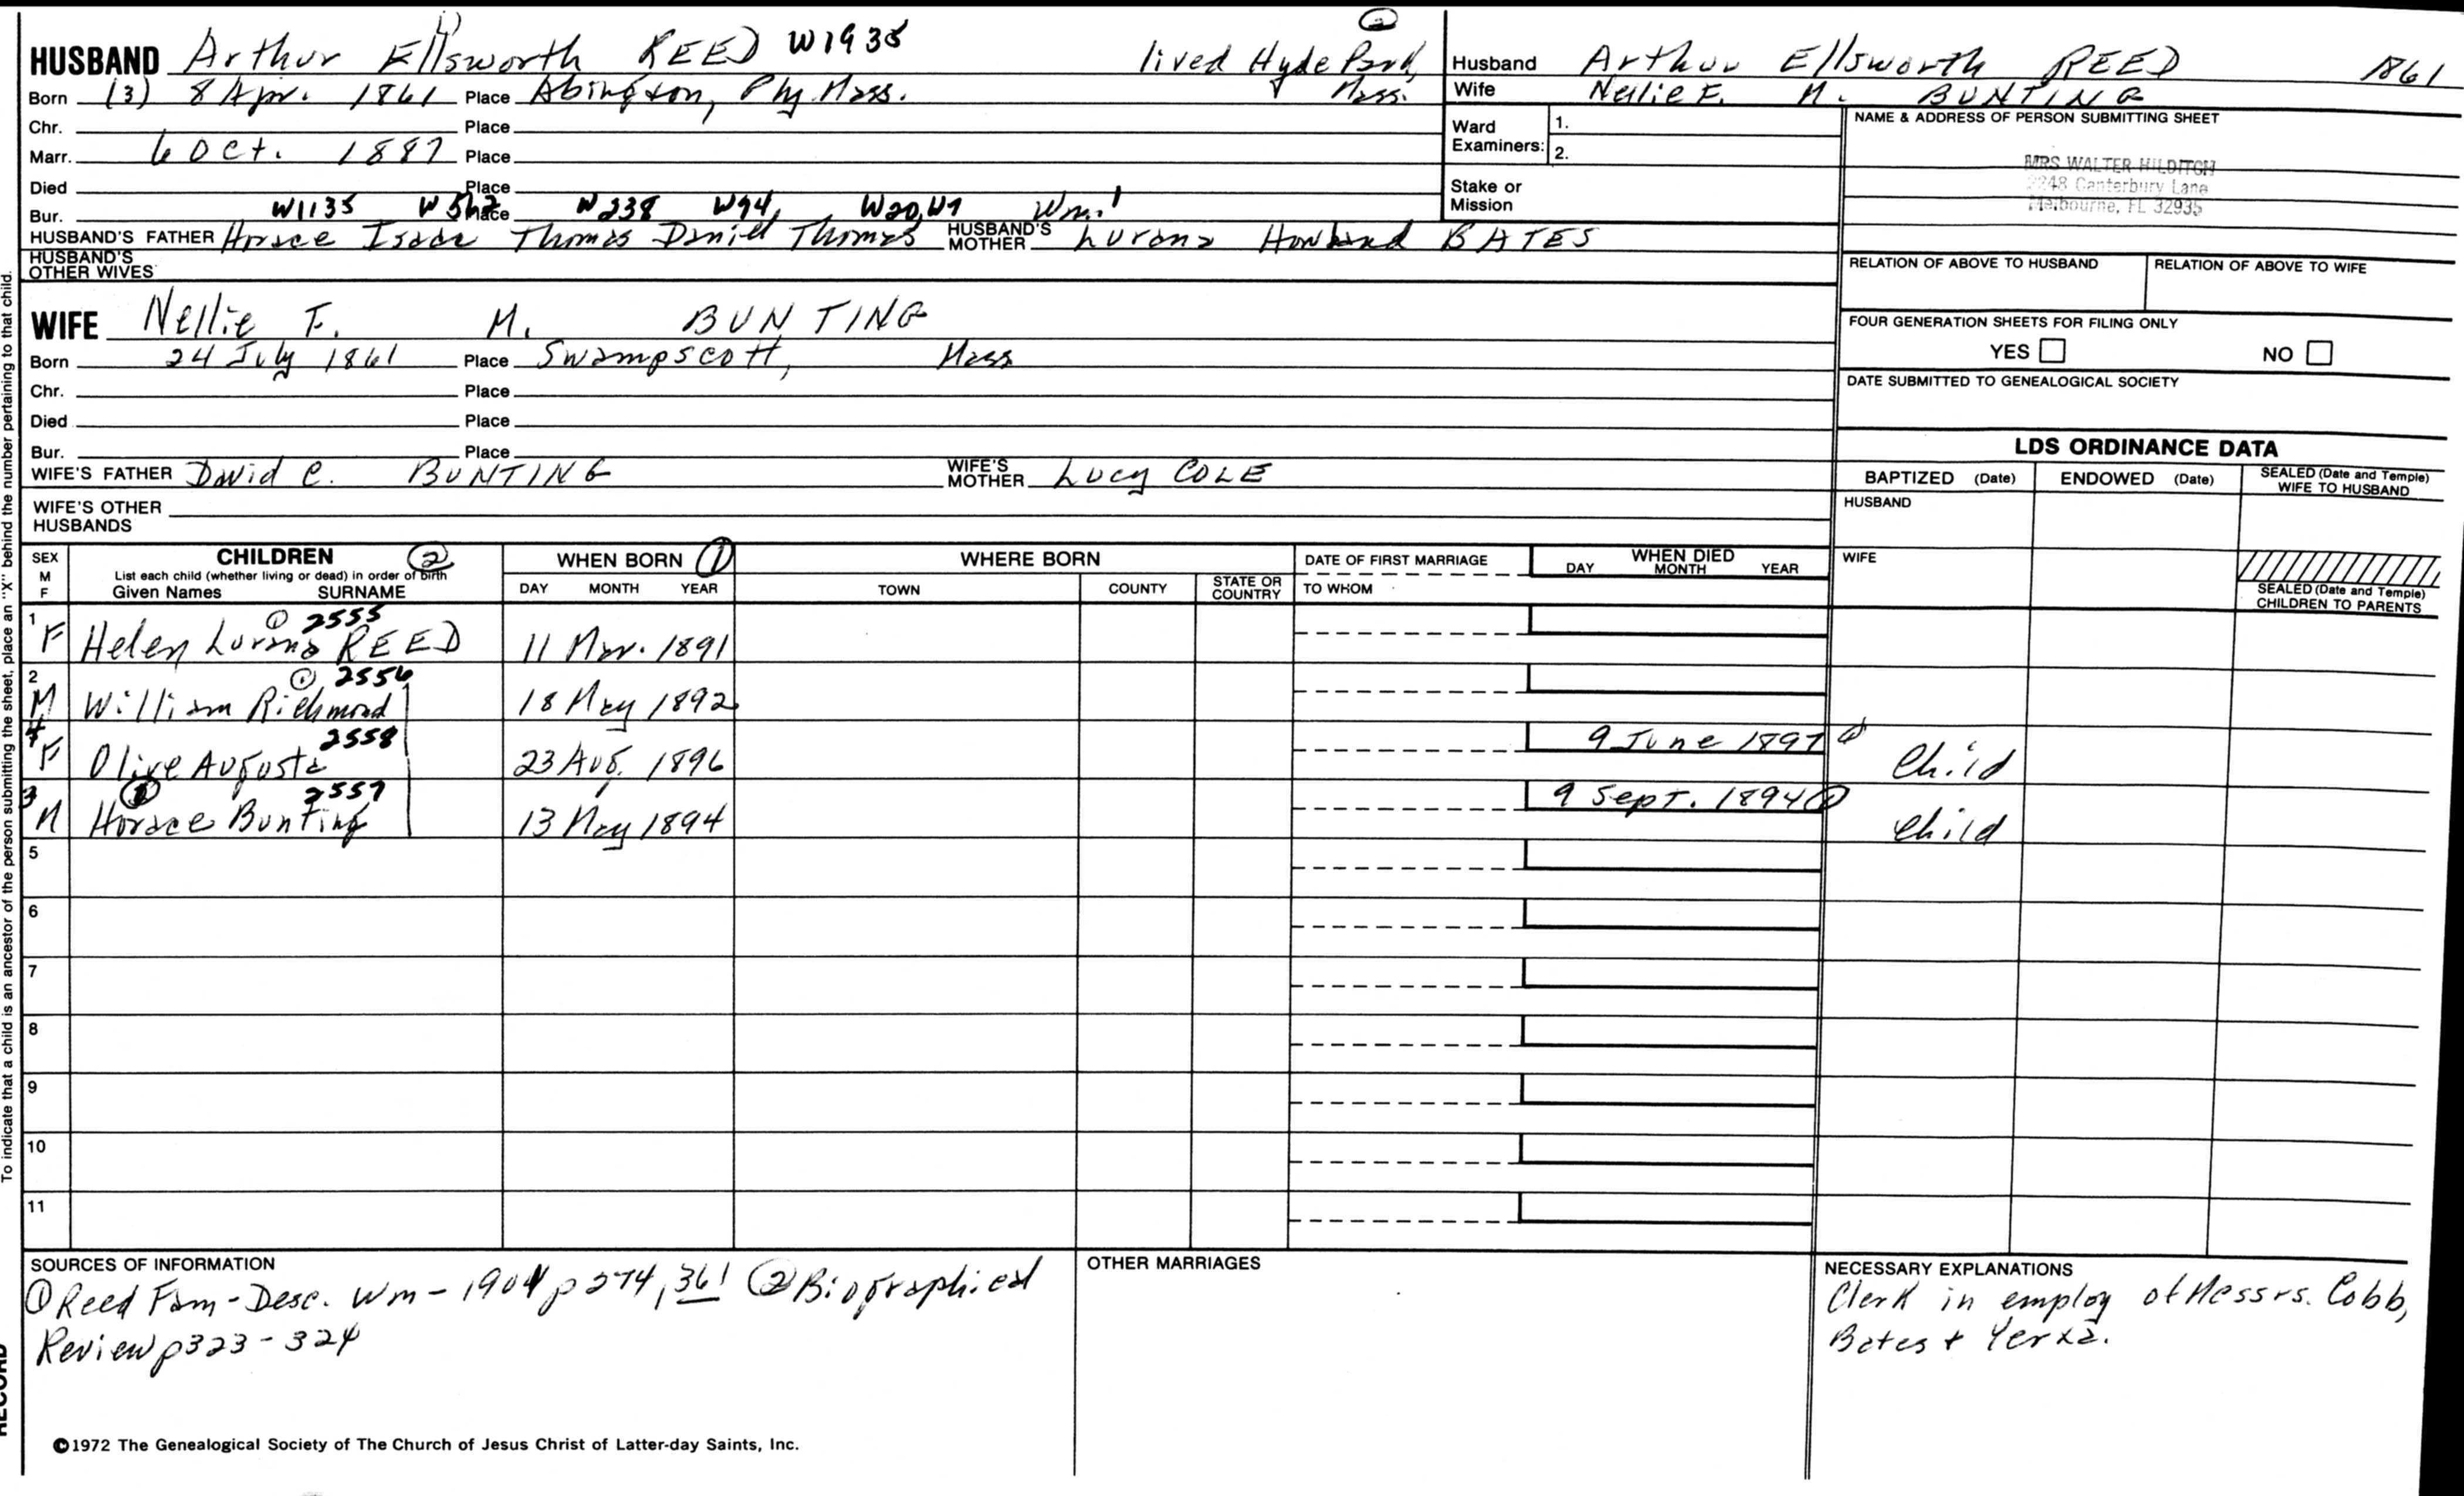 HUSBAND Arthur Ellsworth REED W1935 lived Hyde Park,
Born (3) 8 Apr. 1861 Place Abington, Ply. Mass. Mass.
Chr. Place
Marr. 6 Oct. 1887 Place
Died Place
Bur. W1135 W562 Place W238 W94, W20, W7 Wm.1
HUSBAND'S FATHER Horace Isaac Thomas Daniel Thomas HUSBAND'S MOTHER Lurana Howland BATES
HUSBAND'S OTHER WIVES
WIFE Nellie F. M. BUNTING
Born 24 July 1861 Place Swampscott, Mass
Chr. Place
Died Place
Bur. Place
WIFE'S FATHER David C. BUNTING WIFE'S MOTHER Lucy COLE
WIFE'S OTHER HUSBANDS
Husband Arthur Ellsworth REED 1861
Wife Nellie F. M. BUNTING
Ward Examiners: 1.
2.
Stake or Mission
NAME & ADDRESS OF PERSON SUBMITTING SHEET
MRS WALTER HILDITCH
2248 Canterbury Lane
Melbourne, FL 32935
RELATION OF ABOVE TO HUSBAND RELATION OF ABOVE TO WIFE
FOUR GENERATION SHEETS FOR FILING ONLY
YES NO
DATE SUBMITTED TO GENEALOGICAL SOCIETY
LDS ORDINANCE DATA
BAPTIZED (Date) ENDOWED (Date) SEALED (Date and Temple) WIFE TO HUSBAND
HUSBAND
WIFE
SEALED (Date and Temple) CHILDREN TO PARENTS
SEX M F
CHILDREN ②
List each child (whether living or dead) in order of birth
Given Names SURNAME
WHEN BORN ①
DAY MONTH YEAR
WHERE BORN
TOWN COUNTY STATE OR COUNTRY
DATE OF FIRST MARRIAGE
TO WHOM
WHEN DIED
DAY MONTH YEAR
1 ① 2555
F Helen Lurana REED 11 Mar. 1891
2 ① 2556
M William Richmond 18 May 1892
4 2558 9 June 1897 ①
F Olive Augusta 23 Aug. 1896 Child
3 ① 2557 9 Sept. 1894 ①
M Horace Bunting 13 May 1894 Child
5
6
7
8
9
10
11
SOURCES OF INFORMATION
① Reed Fam - Desc. Wm - 1901 p 274, 361 ② Biographical
Review p323-324
OTHER MARRIAGES
NECESSARY EXPLANATIONS
Clerk in employ of Messrs. Cobb,
Bates + Yerxa.
©1972 The Genealogical Society of The Church of Jesus Christ of Latter-day Saints, Inc.
To indicate that a child is an ancestor of the person submitting the sheet, place an "X" behind the number pertaining to that child.
RECORD